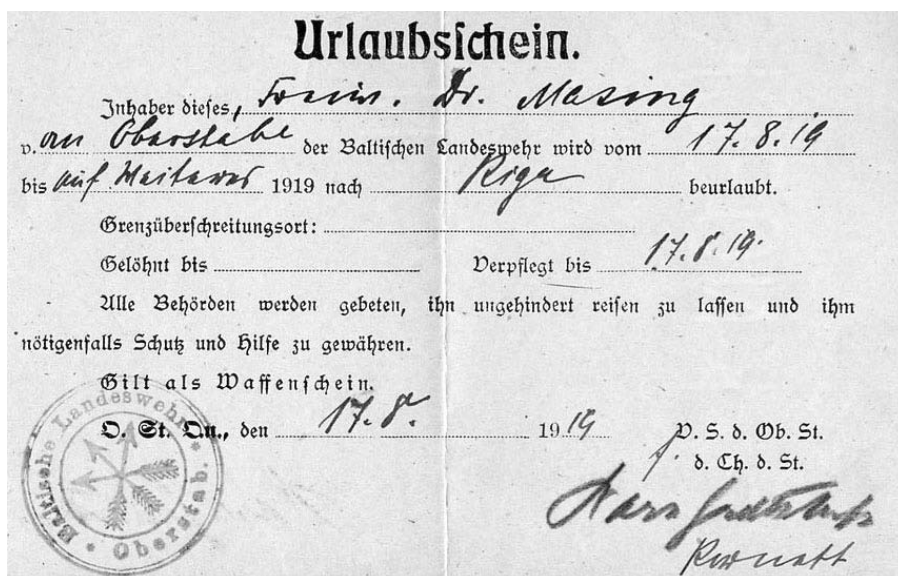 Urlaubsschein.
Inhaber dieses, Freiw. Dr. Masing
v. am Oberstabe der Baltischen Landeswehr wird vom 17. 8. 19
bis auf Weiteres 1919 nach Riga beurlaubt.
Grenzüberschreitungsort:
Gelöhnt bis Verpflegt bis 17. 8. 19.
Alle Behörden werden gebeten, ihn ungehindert reisen zu lassen und ihm
nötigenfalls Schutz und Hilfe zu gewähren.
Gilt als Waffenschein.
O. St. Qu., den 17. 8. 1919
V. S. d. Ob. St.
f. d. Ch. d. St.
Baltische Landeswehr. Oberstab.